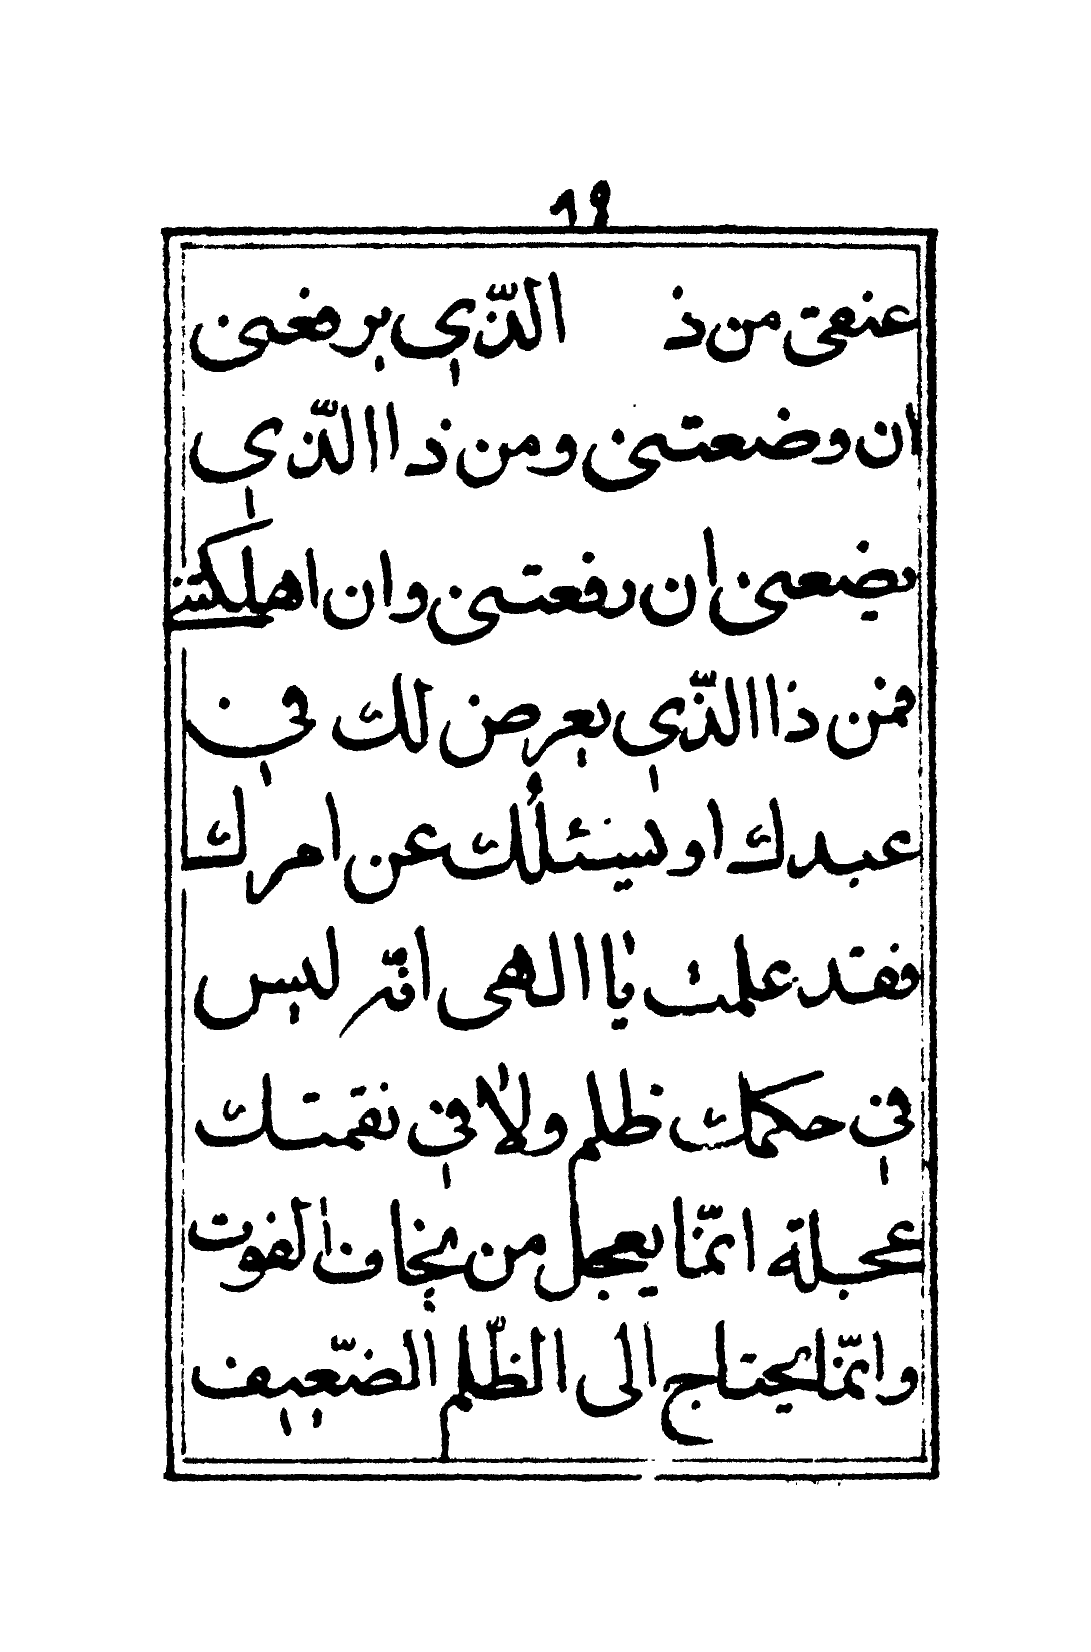 ١٩
عنقى من ذ الذّى يرفعنى
ان وضعتنى ومن ذا الذّى
يضعنى ان رفعتنى وان اهلكتنى
فمن ذا الذّى يعرض لك فى
عبدك او يسئلُك عن امرك
فقد علمت يا الهى انّه ليس
فى حكمك ظلم ولا فى نقمتك
عجلة انّما يعجل من يخاف الفوت
وانّما يحتاج الى الظّلم الضّعيف